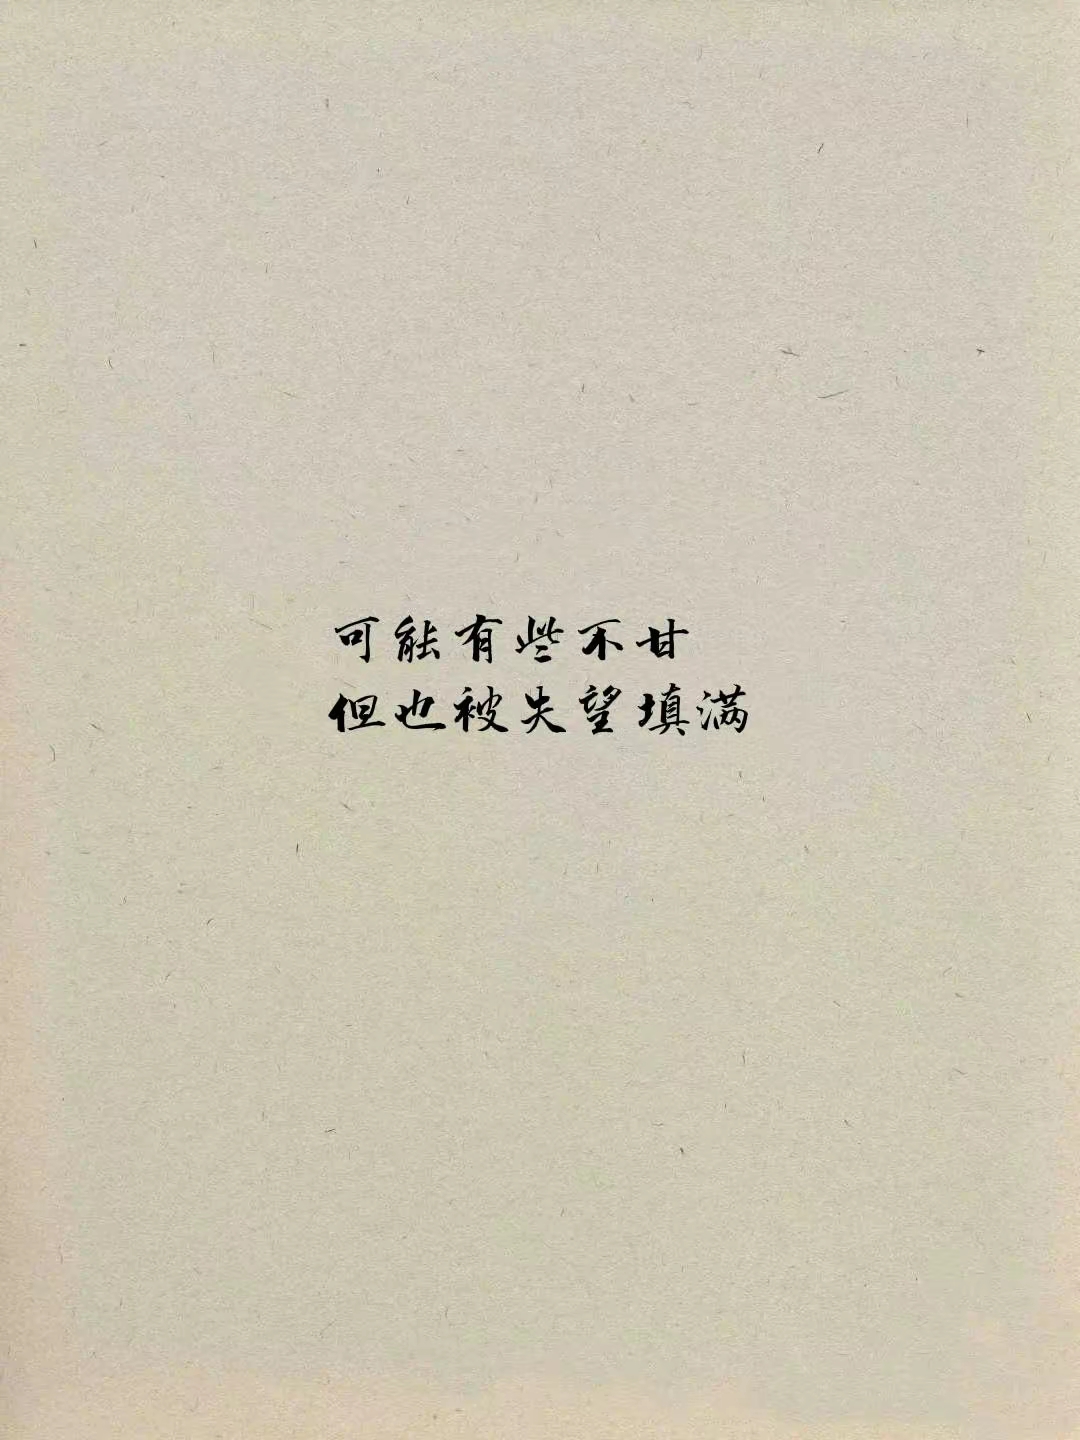 可能有些不甘
但也被失望填满